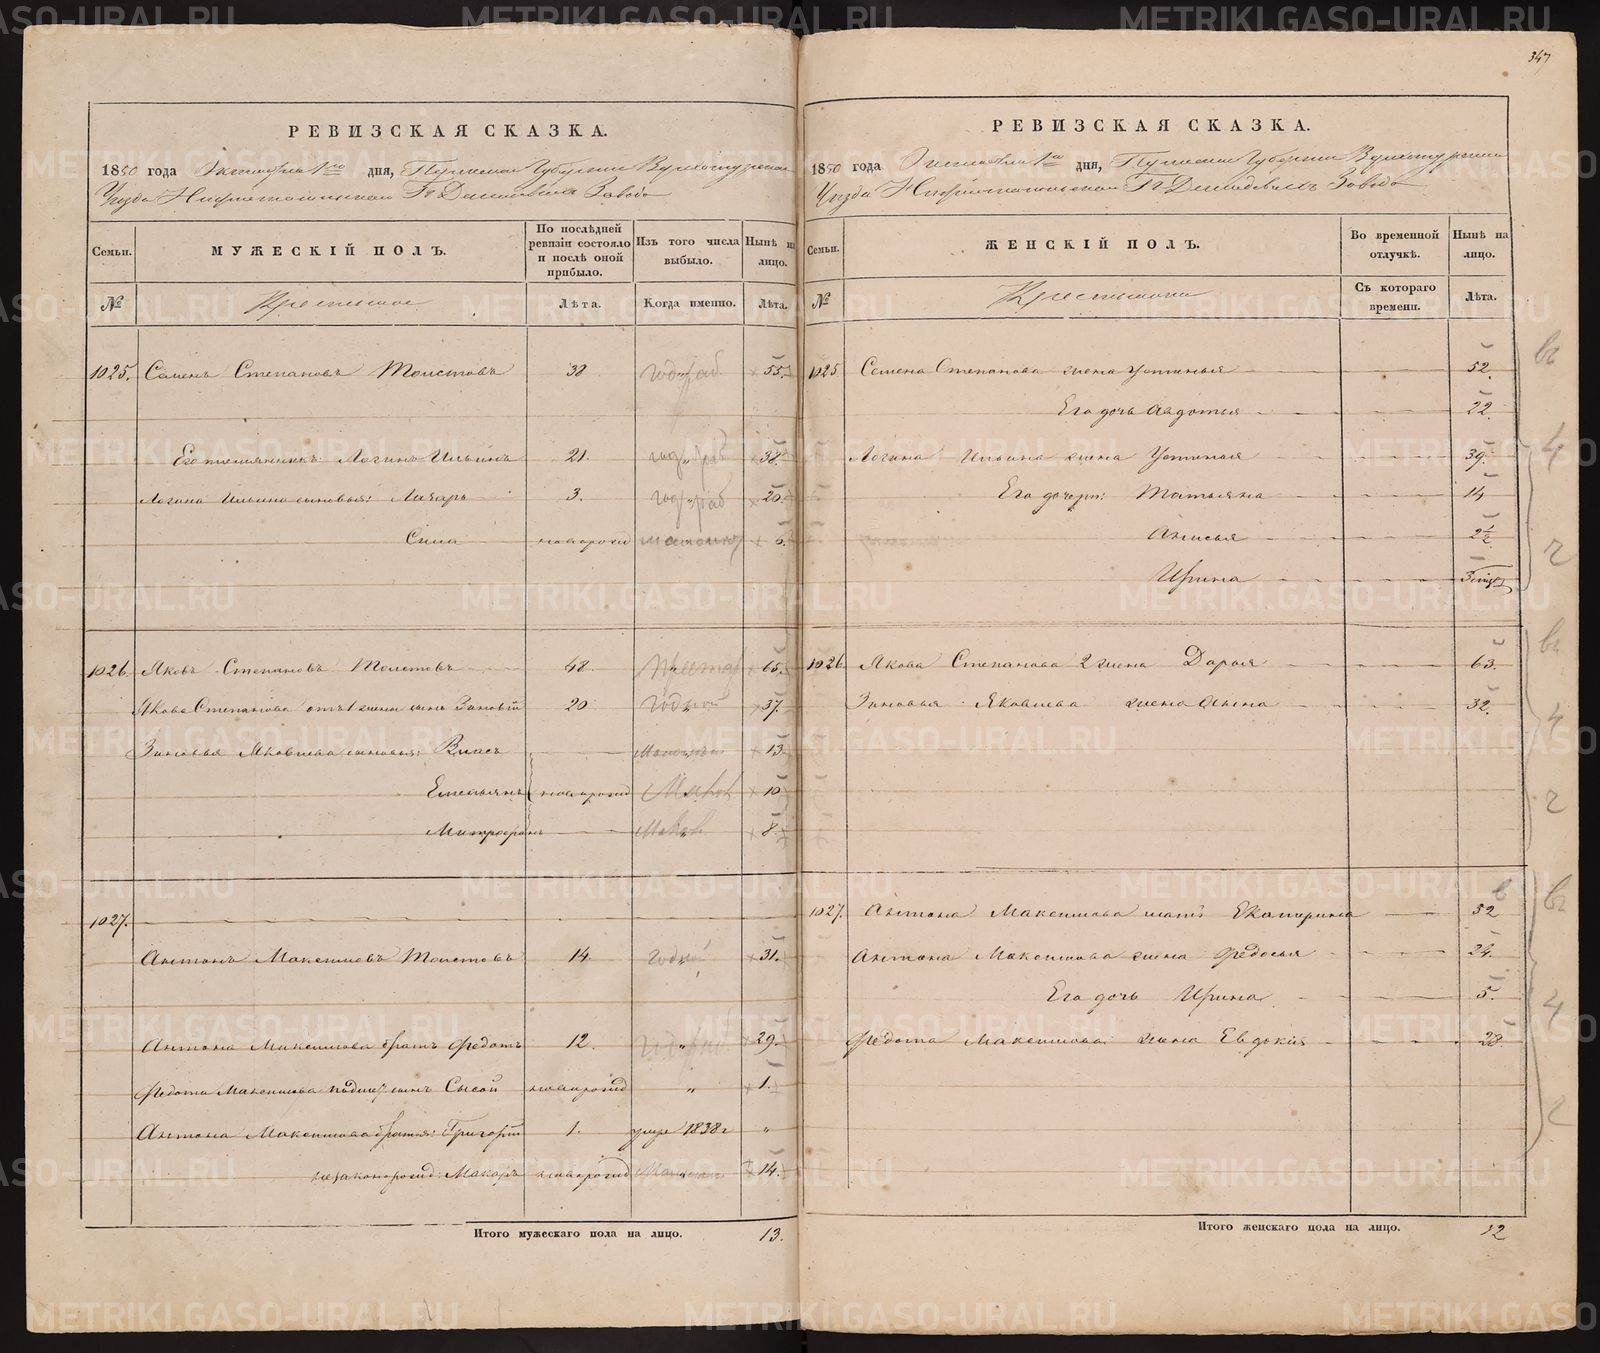 347
РЕВИЗСКАЯ СКАЗКА.
1850 года Октября 1го дня, Пермской Губернии Верхотурскаго
Уезда Нижнетагильскаго Гг Демидовыхъ Завода
Семьи. МУЖЕСКІЙ ПОЛЪ. По послѣдней ревизіи состояло и послѣ оной прибыло. Изъ того числа выбыло. Нынѣ на лицо.
№ Крестьяне Лѣта. Когда именно. Лѣта.
1025. Семенъ Степановъ Толстовъ 38 годн раб 55.
Его племянникъ: Логинъ Ильинъ 21. год раб 38.
Логина Ильина сыновья: Лазарь 3. год раб 20.
Сила новорожд малолет 6.
1026. Яковъ Степановъ Толстовъ 48. престар 65.
Якова Степанова отъ 1 жены сынъ Зиновій 20 годной 37.
Зиновья Яковлева сыновья: 13.
Емельянъ новорожд 10
Митрофанъ 8.
1027.
Антонъ Максимовъ Толстовъ 14. годн 31.
Антона Максимова братъ Федотъ 12. 29.
Федота Максимова сынъ Сысой новорожд „ 1.
Антона Максимова братья: Григорій 1. умре 1838 г „
незаконорожд: Макаръ новорожд 14.
Итого мужескаго пола на лицо. 13.
РЕВИЗСКАЯ СКАЗКА.
1850 года Октября 1го дня, Пермской Губернии Верхотурскаго
Уезда Нижнетагильскаго Гг Демидовыхъ Завода
Семьи. ЖЕНСКІЙ ПОЛЪ. Во временной отлучкѣ. Нынѣ на лицо.
№ Крестьянки Съ котораго времени. Лѣта.
1025 Семена Степанова жена Устинья 52.
Его дочь Авдотья 22.
Логина Ильина жена Устинья 39.
Его дочери: Татьяна 14
Анисья 2½
Ирина
1026. Якова Степанова 2 жена Дарья 63.
Зиновья Яковлева жена 32.
1027. Антона Максимова мать Екатерина 52
Антона Максимова жена Федосья 24.
Его дочь Ирина 5.
Федота Максимова жена Евдокія 28.
Итого женскаго пола на лицо. 12
METRIKI.GASO-URAL.RU